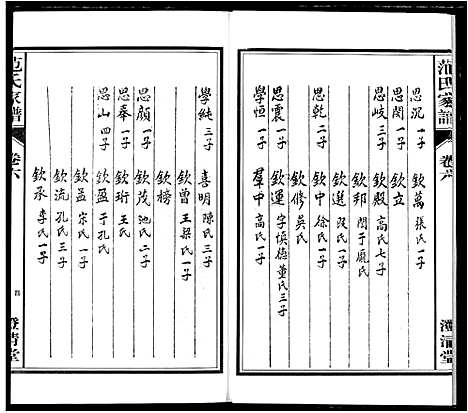 范氏家譜
卷六
澄清堂
思沉 一子
欽萬 張氏一子
思閔 一子
欽立
思岐 三子
欽殷 高氏七子
欽邦 閆于龐氏
思乾 二子
欽選 段氏一子
欽中 徐氏一子
欽修 吳氏
思震 二子
欽運 字慎德董氏三子
學恒 一子
羣中 高氏一子
學純 三子
喜明 陳氏三子
欽曾 王梁氏一子
欽榜
思顏 一子
欽茂 池氏二子
思奉 一子
欽珩 王氏
思山 四子
欽盈 于孔氏
欽益 宋氏一子
欽流 孔氏三子
欽承 李氏一子
范氏家譜
卷六
四
澄清堂